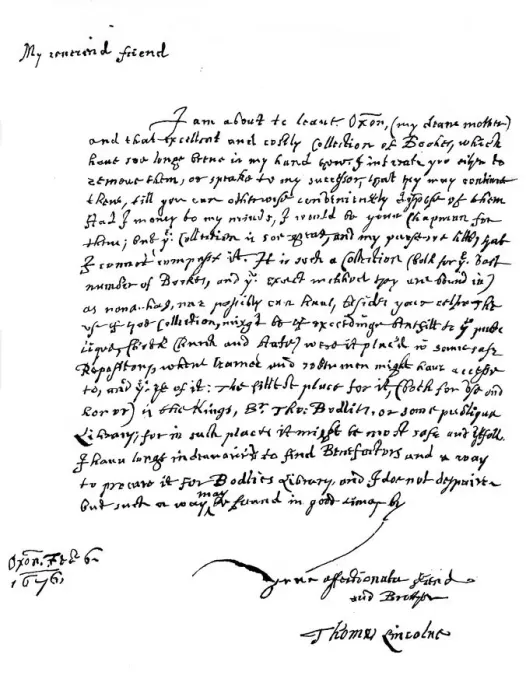 My reverend friend
I am about to leave Oxōn, (my deare mother)
and that excellent and costly Collection of Bookes, which
have soe longe beene in my hand now, I intreate you eithr to
remove them, or speake to my successor, that they may continue
there, till you can otherwise conveniently dispose of them
Had I money to my minde, I would be your Chapman for
them; but yr. Collection is soe great, and my purse soe little, yat
I cannot compass it. It is such a Collection (both for yr. vast
number of Bookes, and yr. exact method they are bound in)
as none has, nor possibly can have, besides your selfe The
use of that Collection, might be of exceedinge benefitt to ye publ
ique, (both Church and state) were it plac'd in some safe
Repository, where learned and sober men might have accesse
to, and ye use of it: The fittest place for it, (both for use and
honor) is the Kings, Sr. Tho: Bodlies, or some publique
Library; for in such places it might be most safe and usefull.
I have longe indeavoured to find Benefactors and a way
to procure it for Bodlies Library, and I doe not despaire
but such a way may be found in good time by
Oxōn. Feb 6.
1676
Youre affectionate friend
and Brother
Thomas Lincolne